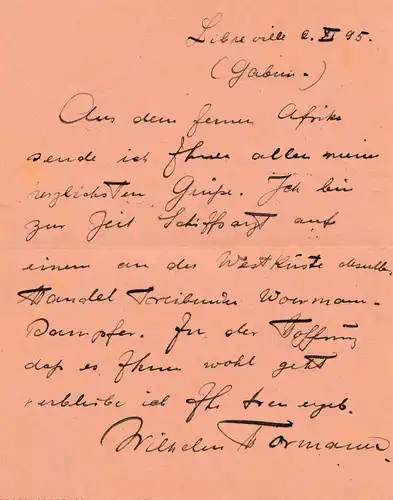 Libreville 2. XI 95.
(Gabun.)
Aus dem fernen Afrika
sende ich Ihnen allen meine
herzlichsten Grüße. Ich bin
zur Zeit Schiffsarzt auf
einem an der Westküste
Handel Treibenden Woermann-
Dampfer. In der Hoffnung
daß es Ihnen wohl geht
verbleibe ich Ihr treu ergeb.
Wilhelm Hormann.